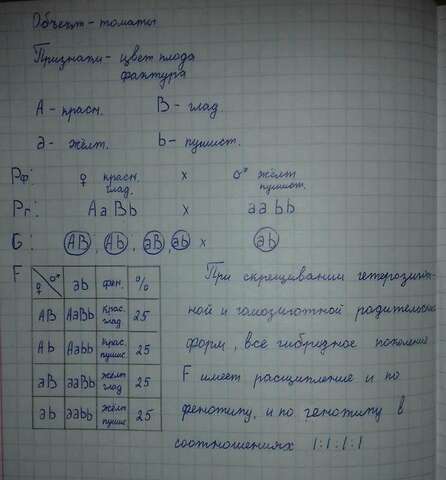 Объект - томаты
Признаки - цвет плода
фактура
А - красн. В - глад.
а - жёлт. b - пушист.
Рф: ♀ красн. глад. х ♂ жёлт пушист.
Рг: АаВb х ааbb
G: АВ; Аb; аВ; аb х аb
F ♀ ♂ аb фен. %
АВ АаВb крас. глад 25
Аb Ааbb крас. пушис 25
аВ ааВb жёлт глад 25
аb ааbb жёлт пушис 25
При скрещивании гетерозигот-
ной и гомозиготной родительских
форм, всё гибридное поколение
F имеет расщипление и по
фенотипу, и по генотипу в
соотношениях 1:1:1:1